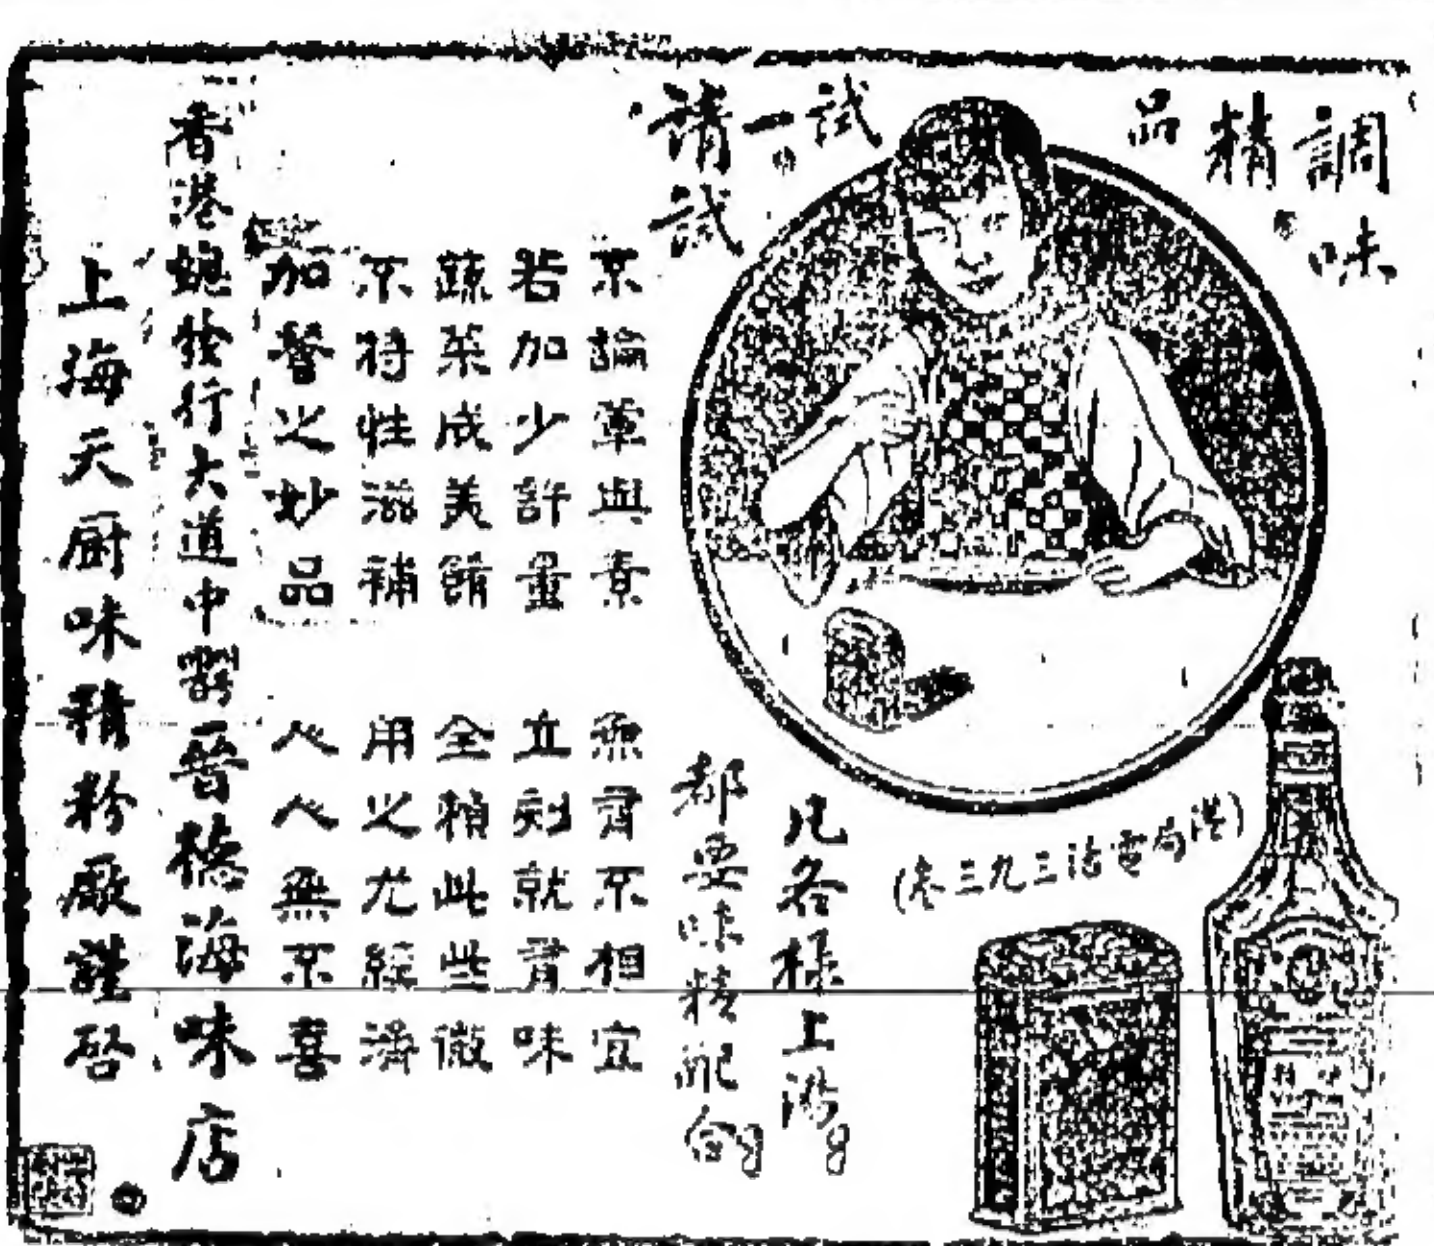 調味
精品
試一請試
(港局電話三九三叁)
凡各樣上湯
都要味精配合
不論葷與素 無有不相宜
若加少許量 立刻就有味
蔬菜成美餚 全賴此些微
不特性滋補 用之尤經濟
加餐之妙品 人人無不喜
香港總發行大道中晉德海味店
上海天廚味精粉廠謹啓